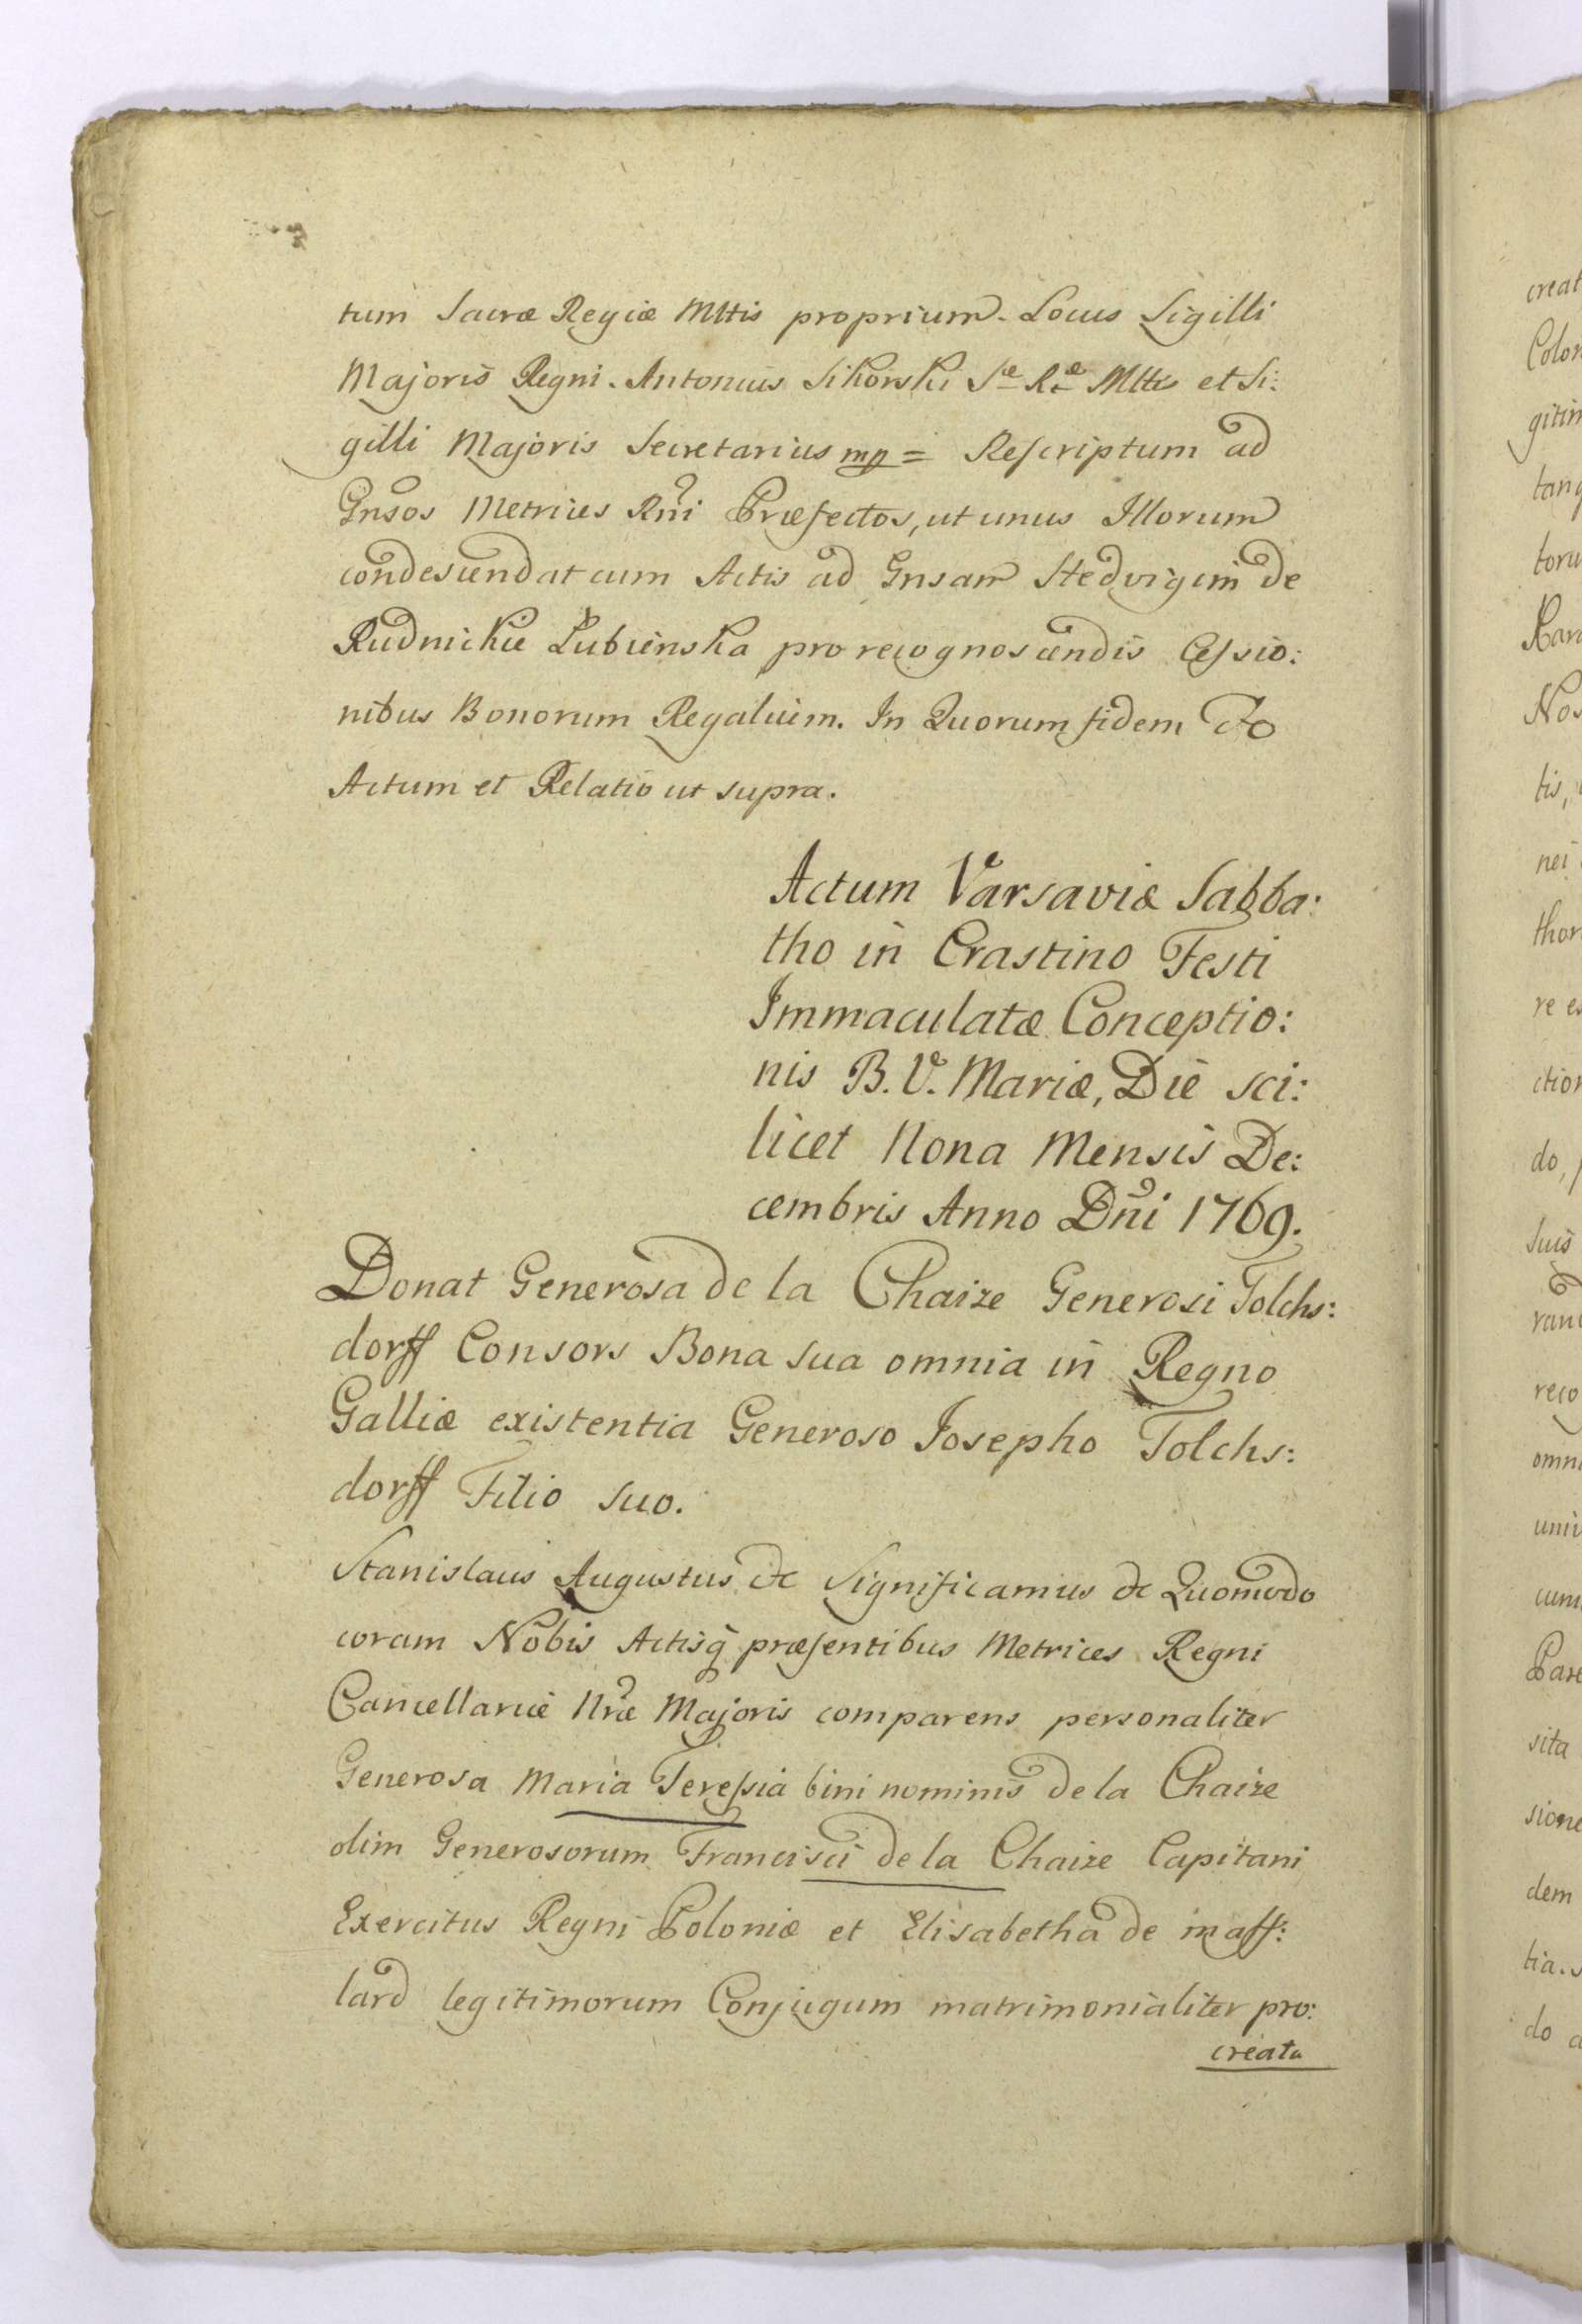 tum Sacræ Regiæ Mttis proprium. Locus Sigilli
Majoris Regni. Antonius Sikorski Sæ Ræ Mttis et Si:
gilli Majoris Secretarius mp = Rescriptum ad
Gnsos Metrices Rni Præfectos, ut unus Illorum
condescendat cum Actis ad Gnsam Hedvigim de
Rudnickie Lubienska pro recognoscendis Cessio:
nibus Bonorum Regalium. In Quorum fidem &c
Actum et Relatio ut supra.
Actum Varsaviæ Sabba:
tho in Crastino Festi
Immaculatæ Conceptio:
nis B. V. Mariæ, Die sci:
licet Nona Mensis De:
cembris Anno Dni 1769.
Donat Generosa de la Chaize Generosi Tolchs:
dorff Consors Bona sua omnia in Regno
Galliæ existentia Generoso Josepho Tolchs:
dorff Filio suo.
Stanislaus Augustus &c Significamus &c Quomodo
coram Nobis Actisq præsentibus Metrices Regni
Cancellariæ Nræ Majoris comparens personaliter
Generosa Maria Teressia bini nominis de la Chaize
olim Generosorum Francisci de la Chaize Capitani
Exercitus Regni Poloniæ et Elisabetha de maff:
lard legitimorum Conjugum matrimonialiter pro:
creata
creat
Colon
gitim
tanq
toru
Nos
tis,
nei
thor
re es
ction
do,
suis
rani
reco
omni
uni
cum
sita
sione
dem
tia.
do